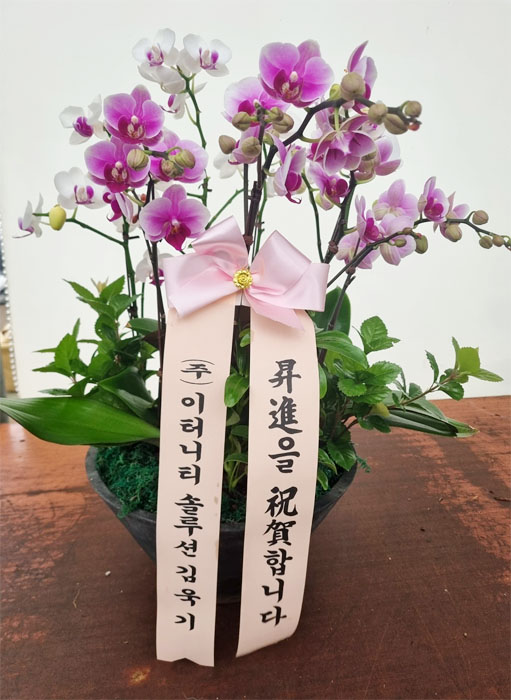 昇進을 祝賀합니다
(주)이터니티 솔루션 김욱기